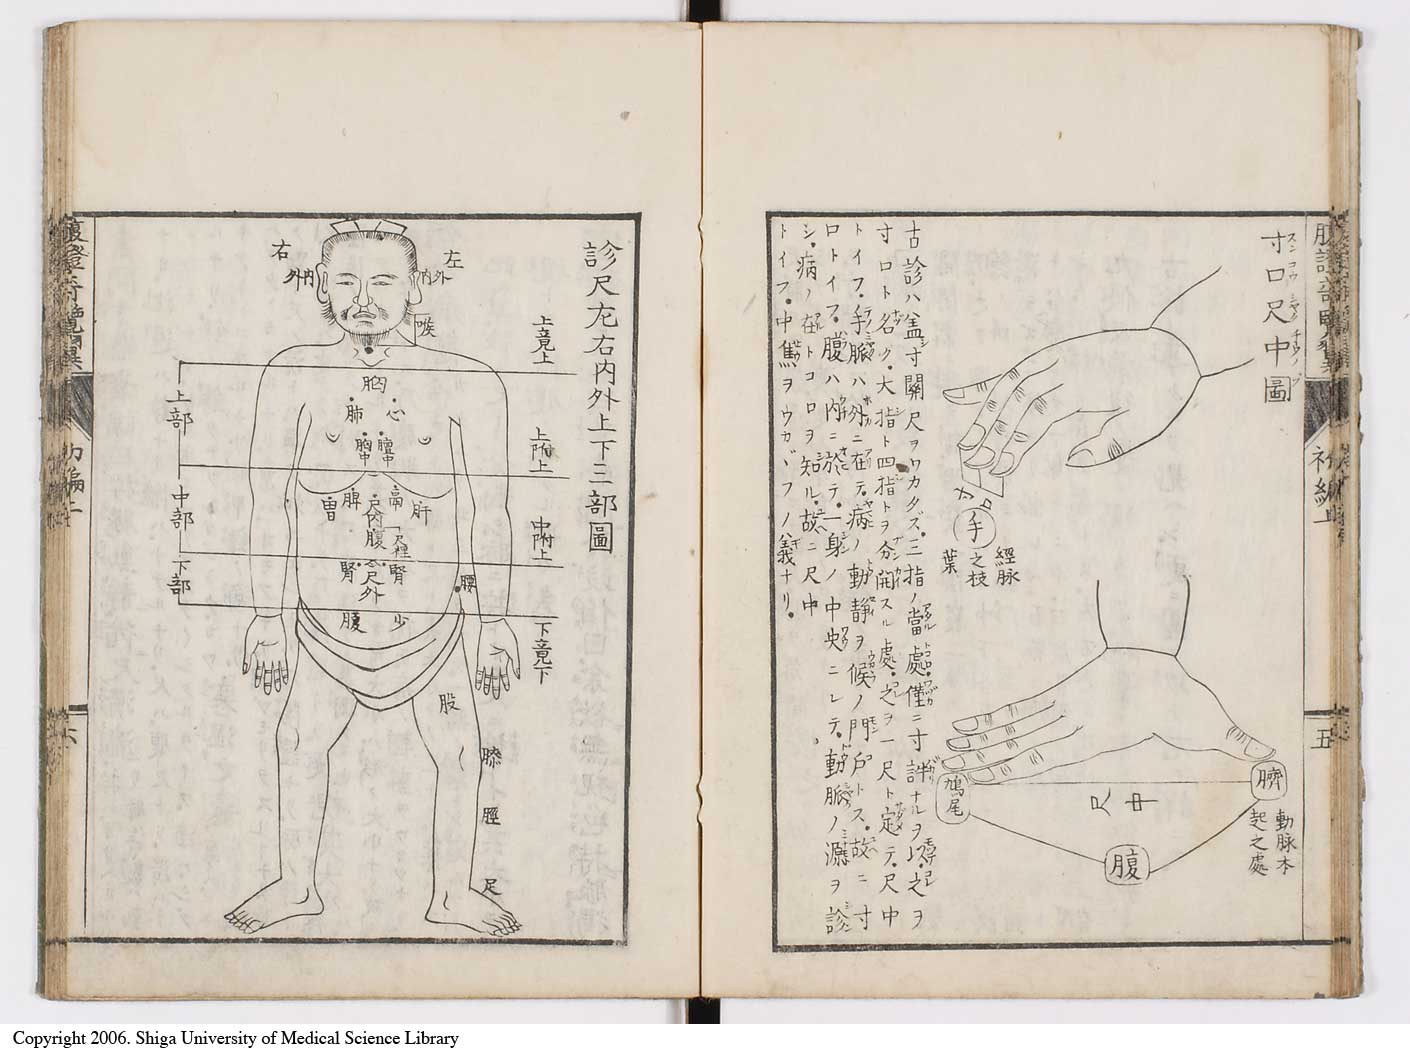 寸口尺中圖
手
經脉
之枝
葉
寸
口
鳩尾
尺中
臍
腹
動脉本
起之處
古診ハ盖寸關尺ヲワカタズ。三指ノ當處僅ニ寸許ナルヲ以。之ヲ
寸口ト名ク。大指ト四指トヲ分開スル處。之ヲ一尺ト定テ。尺中
トイフ。手脈ハ外ニ在テ。病ノ動靜ヲ候ノ門戸トス。故ニ寸
口トイフ。腹ハ内ニ於テ。一身ノ中央ニシテ。動脈ノ源ヲ診
シ。病ノ在トコロヲ知ル。故ニ尺中
トイフ。中焦ヲウカヾフノ義ナリ。
五
診尺左右内外上下三部圖
右
外内
左
内外
喉
上竟上
胸
肺
心
上部
胸中
膻中
上附上
脾
鬲
肝
胃
尺内
腹
尺裡
中部
中附上
腎
尺外
腎
腰
下部
少
腹
下竟下
股
膝
脛
足
六
Copyright 2006. Shiga University of Medical Science Library